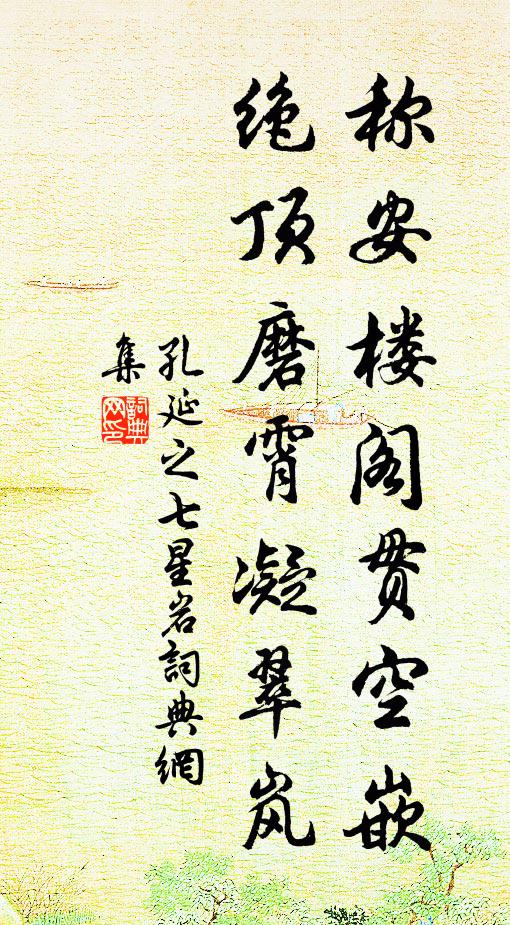 称安楼阁贯空嵌
绝顶磨霄凝翠岚
孔延之七星岩詞典網
集
詞典网印